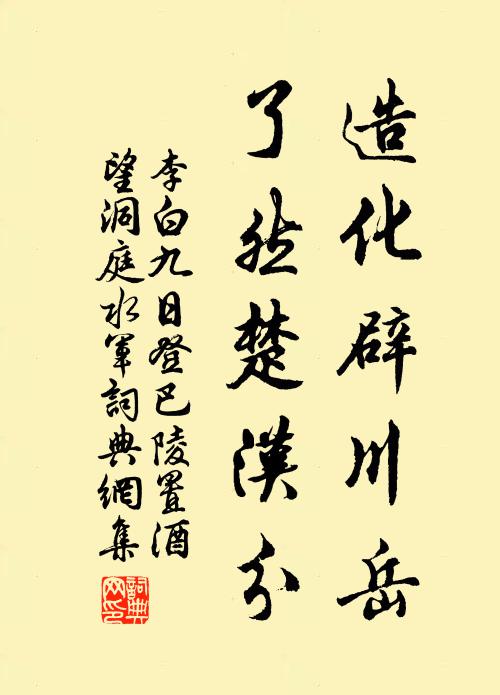 造化辟川岳
了然楚漢分
李白九日登巴陵置酒
望洞庭水軍詞典網集